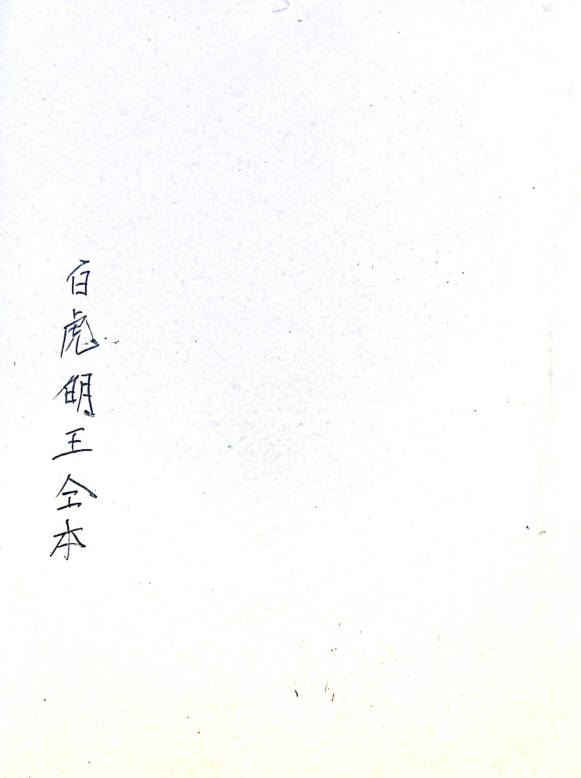 白虎明王仝本